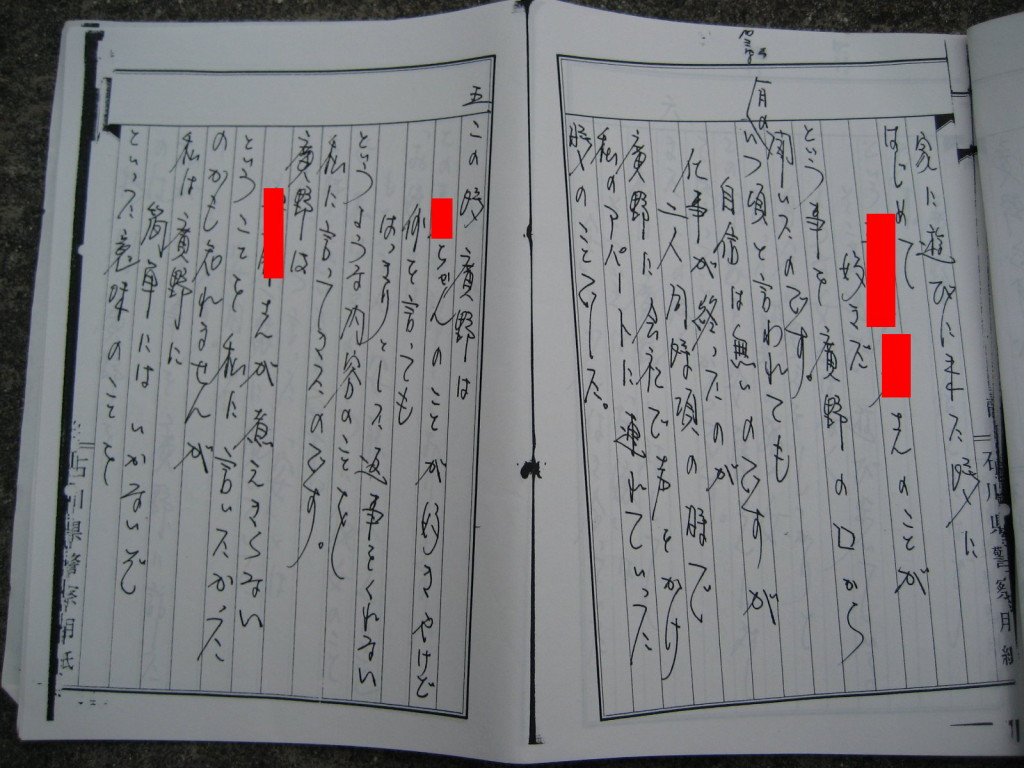 家に遊びにきた時に
はじめて
さんのことが
好きだ
という事を廣野の口から
聞いたのです。
一月の
いつ頃と言われても
自信は無いのですが
仕事が終ったのが
二人同時頃の時で
廣野に会社で声をかけ
私のアパートに連れていった
時のことでした。
石川県警察用紙
五
この時廣野は
とさんのことが好きやけど
何を言っても
はっきりとした返事をくれない
というような内容のことを
私に言ってきたのです。
廣野は
さんが煮えきらない
ということを私に言いたかった
のかも知れませんが
私は廣野に
簡単にはいかないぞ
といった意味のことを
石川県警察用紙